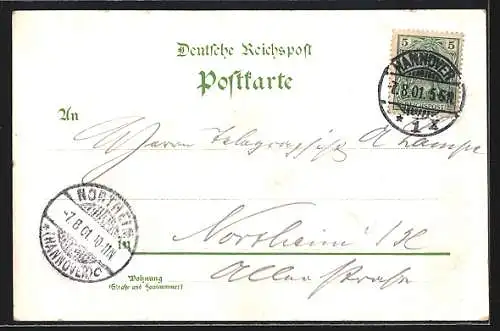 Deutsche Reichspost
Postkarte
5 5
HANNOVER
7.8.01. 5-6N
* 1 *
An
Herrn Telegraphist A Lampe
NORTHEIM
-7.8.01. 10-11N
*(HANNOVER)
in
Northeim
Wohnung
(Straße und Hausnummer)